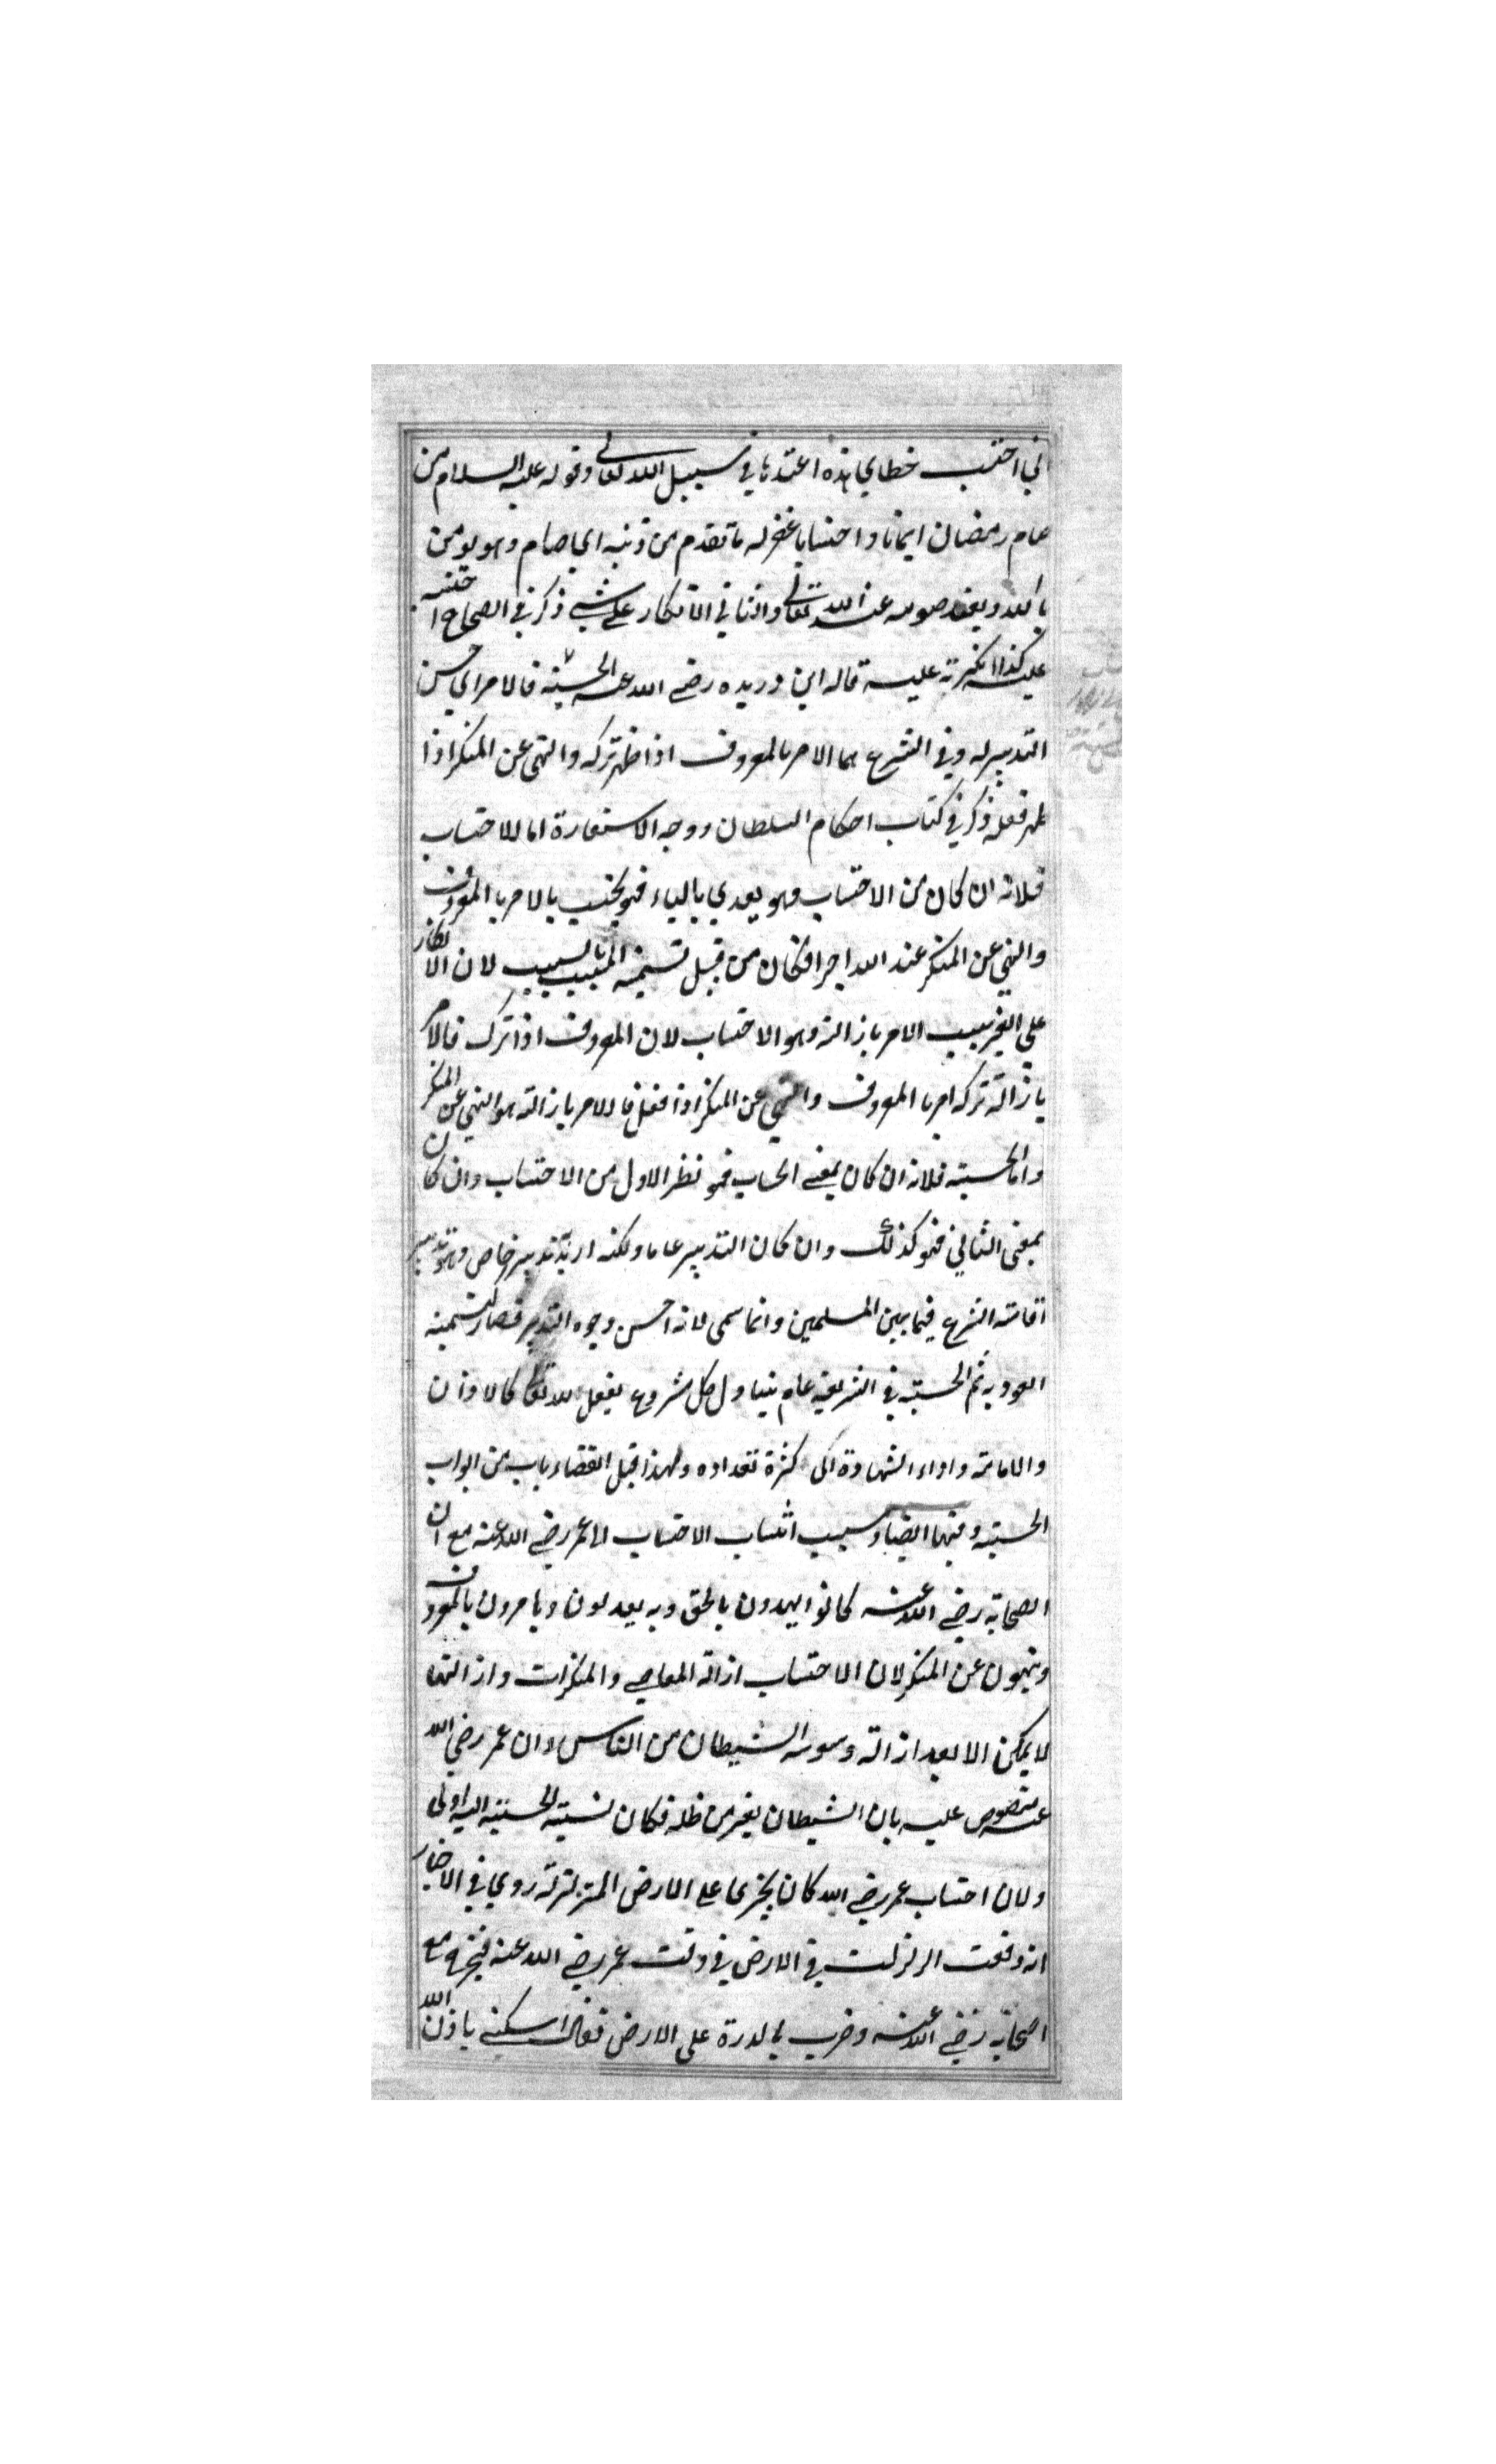 اني احتسب خطاي هذه اعتدها في سبيل الله تعالى وقوله عليه السلام من
صام رمضان ايمانا واحتسابا غفر له ما تقدم من ذنبه اي صام وهو يومن
بالله ويعتد صومه عند الله تعالى والثاني الانكار على شي ذكر في الصحاح احتسب
عليه كذا انكرته عليه قاله ابن دريده رضي الله عنه الحسبة فالامر اي حسن
التدبير له وفي الشرع هما الامر بالمعروف اذا ظهر تركه والنهي عن المنكر اذا
ظهر فعله ذكر في كتاب احكام السلطان ووجه الاستعارة اما للاحتساب
فلانه ان كان من الاحتساب وهو يعدي بالياء فهو يحتسب بالامر بالمعروف
والنهي عن المنكر عند الله اجرا فكان من قبيل تسمية المسبب بالسبب لان الانكار
علي الغير سبب الامر بازالته وهو الاحتساب لان المعروف اذا ترك فالامر
بازالة تركه امر بالمعروف والنهي عن المنكر اذا فعل فالامر بازالته هو النهي عن المنكر
واما الحسبة فلانه ان كان بمعنى الحساب فهو نظر الاول من الاحتساب وان كان
بمعنى الثاني فهو كذلك وان كان التدبير عاما ولكنه اريد تدبير خاص وهو تدبير
اقامة الشرع فيما بين المسلمين وانما سمي لانه احسن وجوه التدبير فصار كتسمية
العود به ثم الحسبة في الشريعة عام يتناول كل مشروع يفعل لله تعالى كالاذان
والامامة واداء الشهادة الى كثرة تعداده ولهذا قيل القضاء باب من ابواب
الحسبة وفيها ايضا وسبب انتساب الاحتساب الى عمر رضي الله عنه مع ان
الصحابة رضي الله عنه كانوا يهدون بالحق وبه يعدلون ويامرون بالمعروف
وينهون عن المنكر لان الاحتساب ازالة المعاصي والمنكرات وازالتها
لا يمكن الا بعد ازالة وسوسة الشيطان من الناس وان عمر رضي الله
عنه منصوص عليه بان الشيطان يفر من ظله فكان نسبة الحسبة اليه اولى
ولان احتساب عمر رضي الله كان يجزى على الارض المتزلزلة روي في الاخبار
انه وقعت الزلزلت في الارض في وقت عمر رضي الله عنه فخرج مع
اصحابه رضي الله عنه وضرب بالدرة على الارض فقال اسكني باذن الله